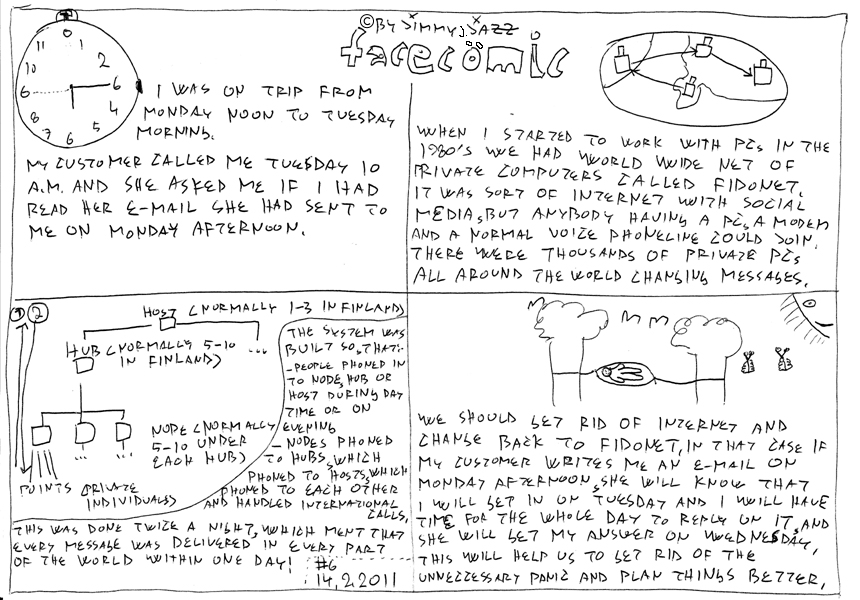 © BY JIMMY J. JAZZ
facecomic
0
11 1
10 2
9 6
8 4
7 5
6
I WAS ON TRIP FROM
MONDAY NOON TO TUESDAY
MORNING.
MY CUSTOMER CALLED ME TUESDAY 10
A.M. AND SHE ASKED ME IF I HAD
READ HER E-MAIL SHE HAD SENT TO
ME ON MONDAY AFTERNOON.
WHEN I STARTED TO WORK WITH PCs IN THE
1980'S WE HAD WORLD WIDE NET OF
PRIVATE COMPUTERS CALLED FIDONET.
IT WAS SORT OF INTERNET WITH SOCIAL
MEDIA, BUT ANYBODY HAVING A PC, A MODEM
AND A NORMAL VOICE PHONELINE COULD JOIN.
THERE WERE THOUSANDS OF PRIVATE PCs
ALL AROUND THE WORLD CHANGING MESSAGES.
1 2
HOST (NORMALLY 1-3 IN FINLAND)
HUB (NORMALLY 5-10
IN FINLAND)
...
NODE (NORMALLY
5-10 UNDER
EACH HUB)
... ...
POINTS (PRIVATE
INDIVIDUALS)
THE SYSTEM WAS
BUILT SO, THAT:
- PEOPLE PHONED IN
TO NODE, HUB OR
HOST DURING DAY
TIME OR ON
EVENING
- NODES PHONED
TO HUBS, WHICH
PHONED TO HOSTS, WHICH
PHONED TO EACH OTHER
AND HANDLED INTERNATIONAL
CALLS.
THIS WAS DONE TWICE A NIGHT, WHICH MENT THAT
EVERY MESSAGE WAS DELIVERED IN EVERY PART
OF THE WORLD WITHIN ONE DAY!
#6
14.2.2011
WE SHOULD GET RID OF INTERNET AND
CHANGE BACK TO FIDONET, IN THAT CASE IF
MY CUSTOMER WRITES ME AN E-MAIL ON
MONDAY AFTERNOON, SHE WILL KNOW THAT
I WILL GET IN ON TUESDAY AND I WILL HAVE
TIME FOR THE WHOLE DAY TO REPLY ON IT, AND
SHE WILL GET MY ANSWER ON WEDNESDAY.
THIS WILL HELP US TO GET RID OF THE
UNNECCESSARY PANIC AND PLAN THINGS BETTER.